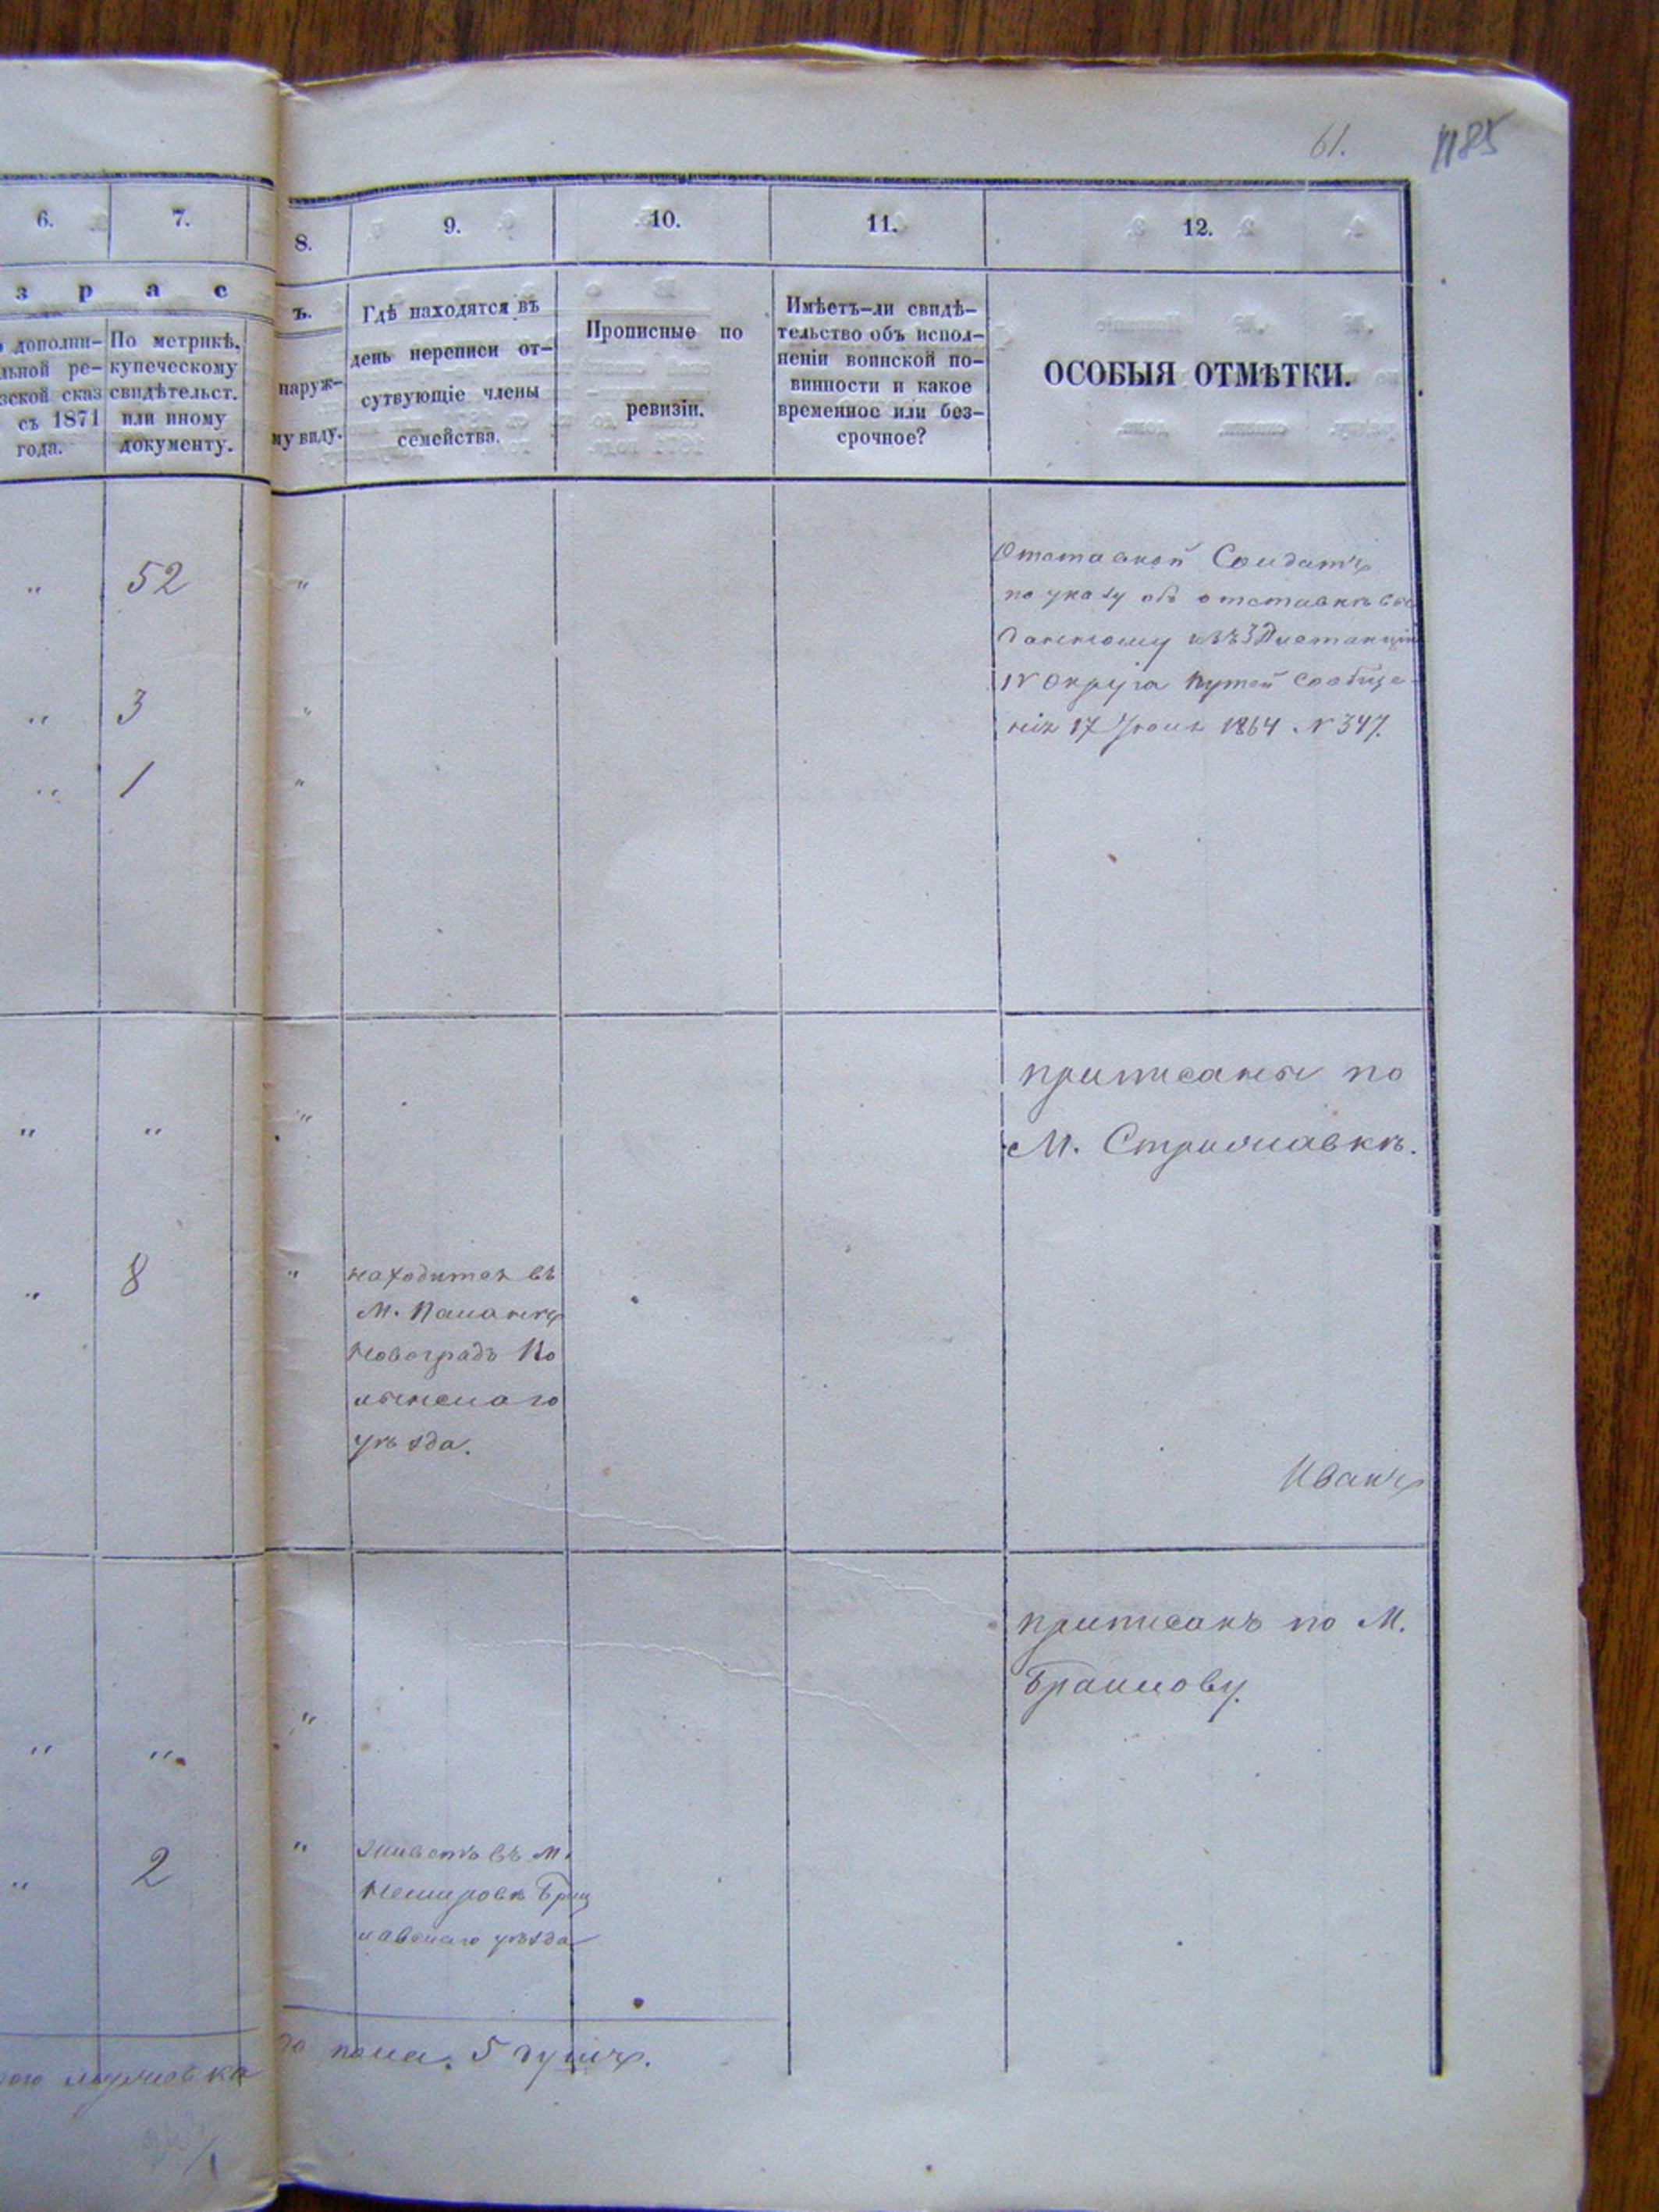 61.
1185
6.
7.
8.
9.
10.
11.
12.
з р а с
ъ.
дополни-
льной ре-
зской сказ
съ 1871
года.
По метрикѣ,
купеческому
свидѣтельст.
или иному
документу.
наруж-
му виду.
Гдѣ находятся въ
день переписи от-
сутвующіе члены
семейства.
Прописные по
ревизіи.
Имѣетъ-ли свидѣ-
тельство объ испол-
неніи воинской по-
винности и какое
временное или без-
срочное?
ОСОБЫЯ ОТМѢТКИ.
" 52 "
Отставной Солдатъ
по указу объ отставкѣ вы
данному изъ 3 Дистанціи
IV Округа Путей Сообще-
нія 17 Іюня 1864 N 347.
" 3 "
" 1 "
" " "
приписаны по
М. Стрижавкѣ.
" 8 "
находится въ
М.
Новоградъ Во
лынскаго
уѣзда.
Иванъ
приписанъ по М.
Браилову.
" " "
" 2 "
живетъ въ М.
Немировѣ Брац
лавскаго уѣзда
го пола 5 душъ.